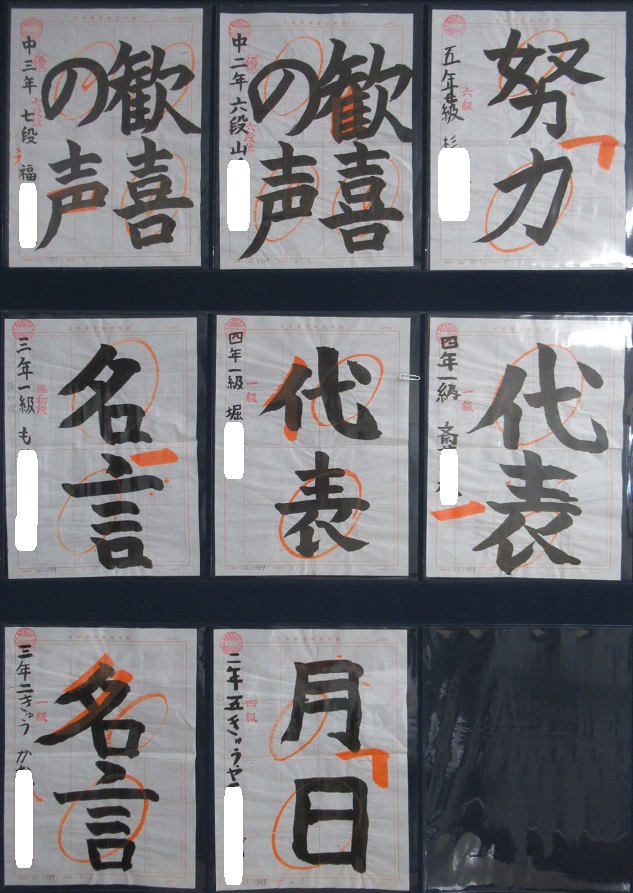 歓喜
の声
優
中三年 七段 福
歓喜
の声
優
中二年 六段 山
努力
六級
五年 級 杉
名言
準初段
三年一級 も
代表
一級
四年一級 堀
代表
一級
四年一級
名言
一級
三年二きゅう か
月日
四級
二年五きゅう や